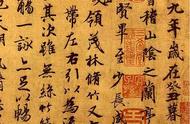 九年歲在癸丑暮
稽山陰之蘭亭
賢畢至少長咸
領茂林脩竹又
帶左右引以為流
其次雖無絲竹
一詠亦足以暢